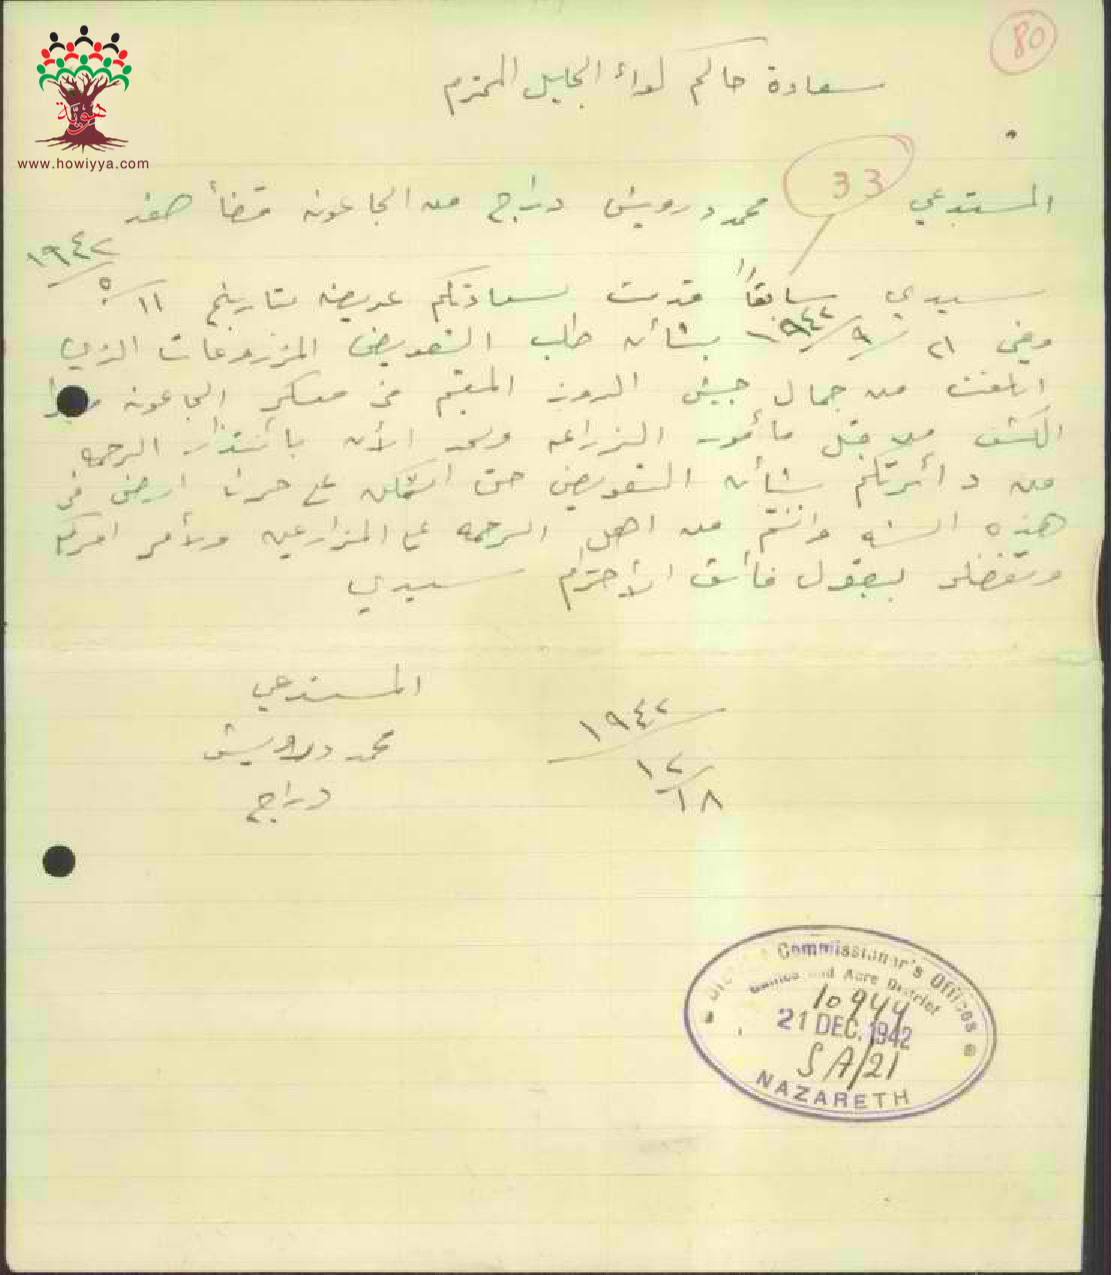 80
هوية
www.howiyya.com
سعادة حاكم لواء الجليل المحترم
33
المستدعي محمد درويش دراج من الجاعونه قضأ صفد
سيدي سابقاً قدمت لسعادتكم عريضه بتاريخ ١١/٥/١٩٤٢
وفي ٢١/٩/١٩٤٢ بشأن طلب التعويض المزروعات الذي
اتلفت من جمال جيش الدروز المقيم في معسكر الجاعونه
الكشف من قبل مأمور الزراعه ولحد الأن بأنتذار الرحمه
من دائرتكم بشأن التعويض حتى اتمكن على حرث ارضي في
هذه السنه وانتم من اهل الرحمه على المزارعين ولأمر امركم
وتفضلو بقبول فأق الأحترام سيدي
المستدعي
محمد درويش
دراج
١٩٤٢
١٢
١٨
Commissioner's Offices
and Acre District
10944
21 DEC. 1942
SA/21
NAZARETH